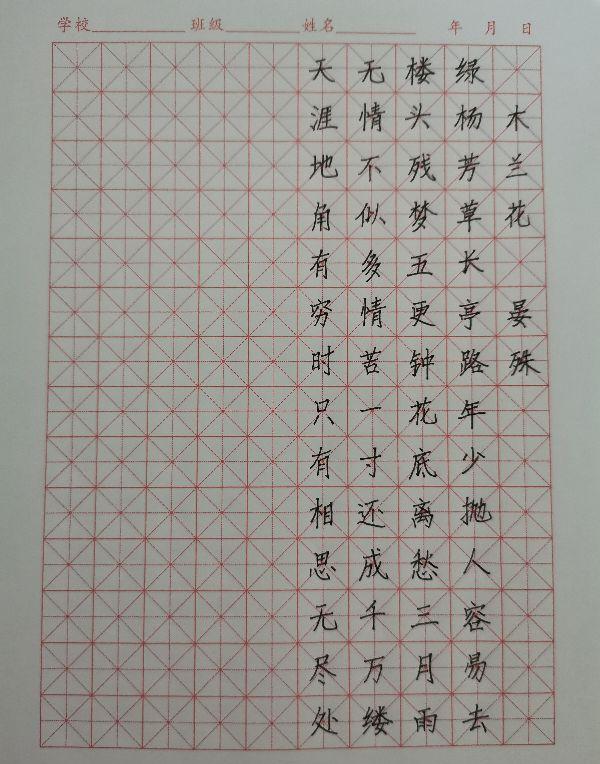 学校 班级 姓名 年 月 日
木兰花 晏殊
绿杨芳草长亭路年少抛人容易去
楼头残梦五更钟花底离愁三月雨
无情不似多情苦一寸还成千万缕
天涯地角有穷时只有相思无尽处